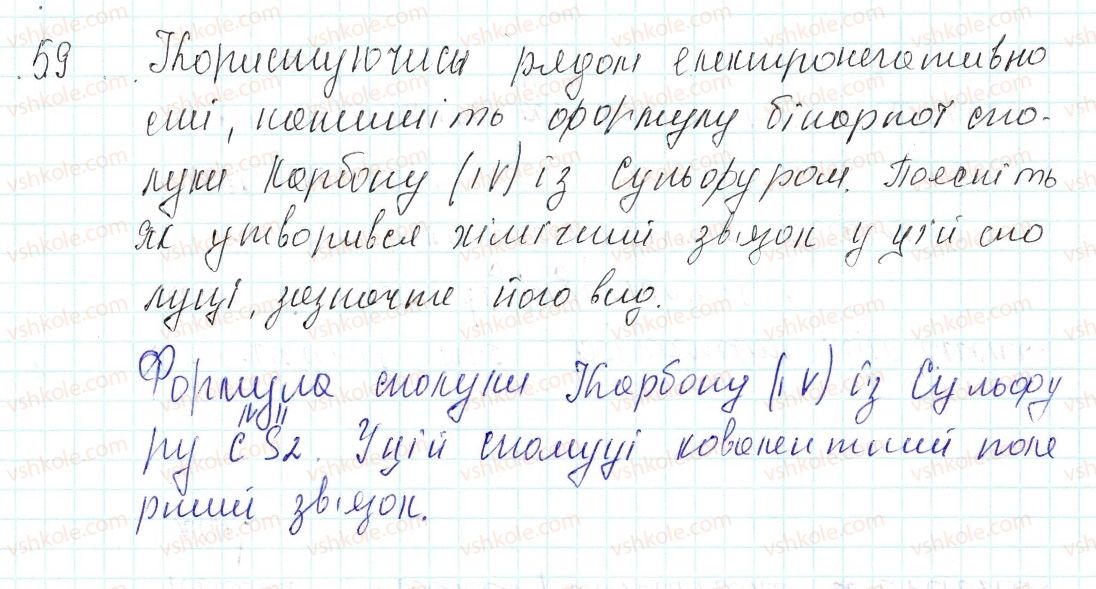 59 Користуючись рядом електронегативно
сті, напишіть формулу бінарної спо-
луки Карбону (IV) із Сульфуром. Поясніть
як утворився хімічний зв'язок у цій спо
луці, зазначте його вид.
Формула сполуки Карбону (IV) із Сульфу
IV II
ру CS2. У цій сполуці ковалентний поля
рний зв'язок.